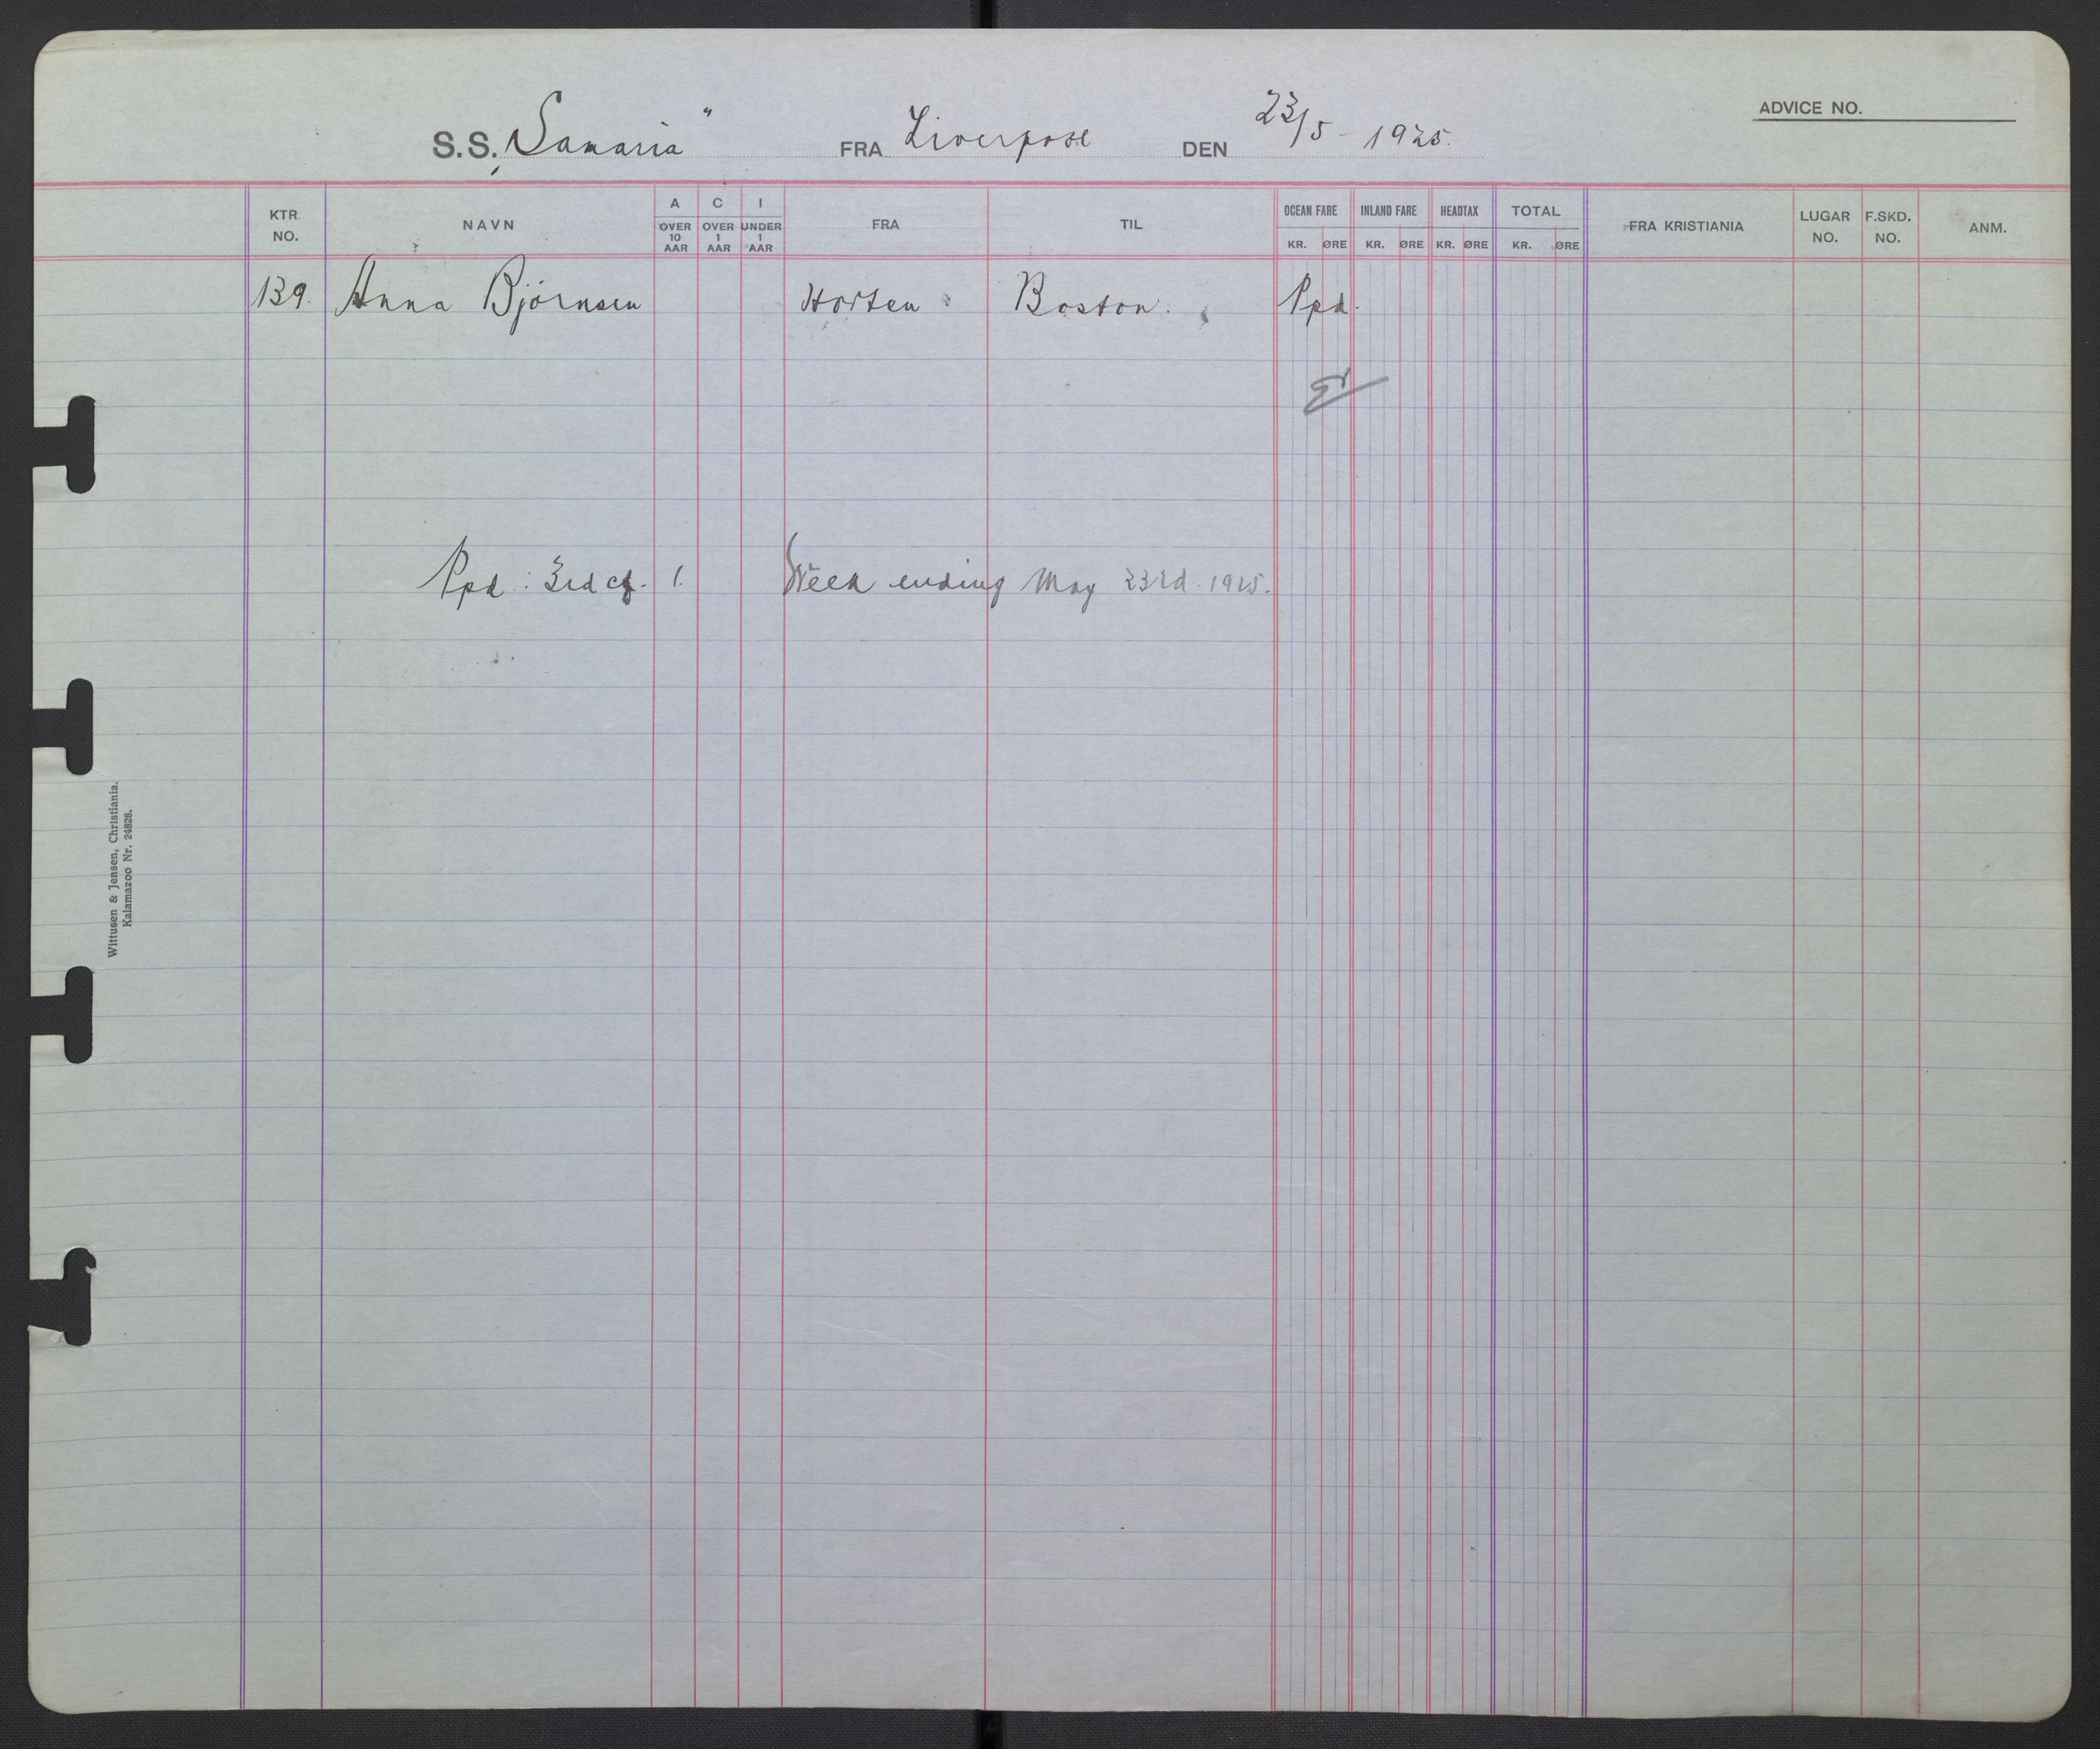 ADVICE NO.
S.S. „Samaria" FRA Liverpool DEN 23/5 - 1925.
KTR. NO. NAVN A OVER 10 AAR C OVER 1 AAR I UNDER 1 AAR FRA TIL OCEAN FARE KR. ØRE INLAND FARE KR. ØRE HEADTAX KR. ØRE TOTAL KR. ØRE FRA KRISTIANIA LUGAR NO. F.SKD. NO. ANM.
139. Anna Bjørnsen Horten Boston. Ppd.
Ppd: 3rd cl. 1. Week ending May 23rd 1925.
Wittusen & Jensen, Christiania.
Kalamazoo Nr. 24828.